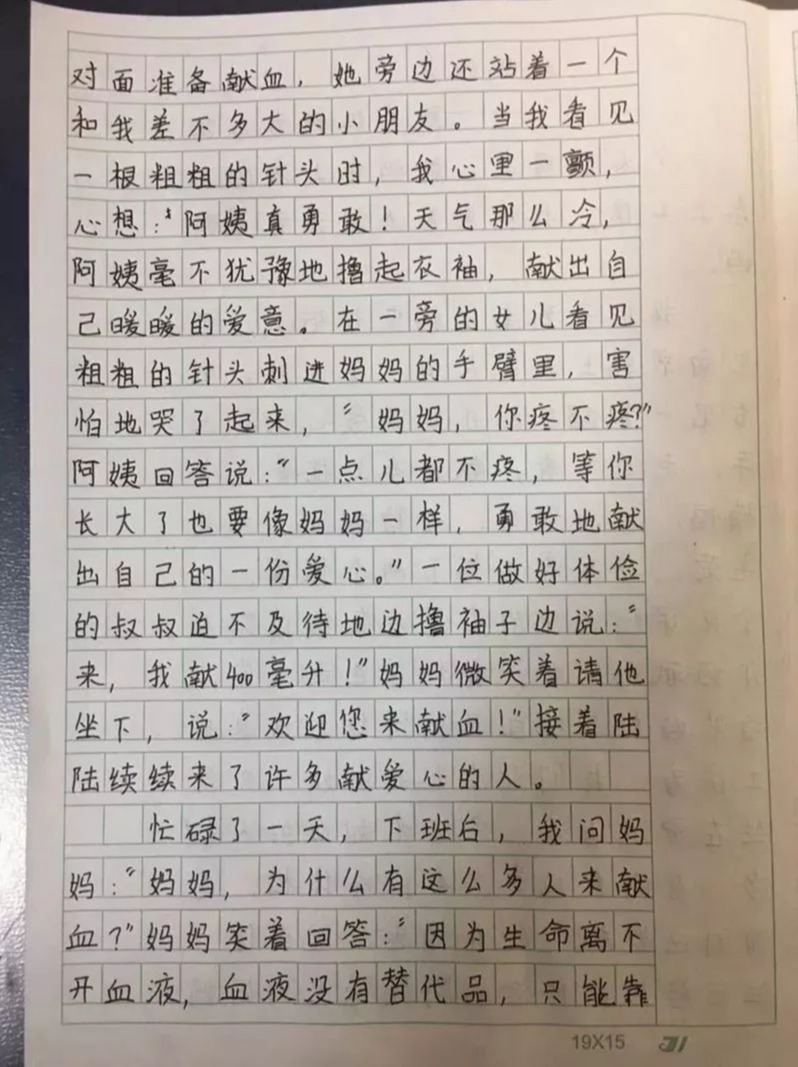 对面准备献血，她旁边还站着一个
和我差不多大的小朋友。当我看见
一根粗粗的针头时，我心里一颤，
心想：“阿姨真勇敢！天气那么冷，
阿姨毫不犹豫地撸起衣袖，献出自
己暖暖的爱意。在一旁的女儿看见
粗粗的针头刺进妈妈的手臂里，害
怕地哭了起来，“妈妈，你疼不疼？”
阿姨回答说：“一点儿都不疼，等你
长大了也要像妈妈一样，勇敢地献
出自己的一份爱心。”一位做好体俭
的叔叔迫不及待地边撸袖子边说：“
来，我献400毫升！”妈妈微笑着请他
坐下，说：“欢迎您来献血！”接着陆
陆续续来了许多献爱心的人。
忙碌了一天，下班后，我问妈
妈：“妈妈，为什么有这么多人来献
血？”妈妈笑着回答：“因为生命离不
开血液，血液没有替代品，只能靠
19X15